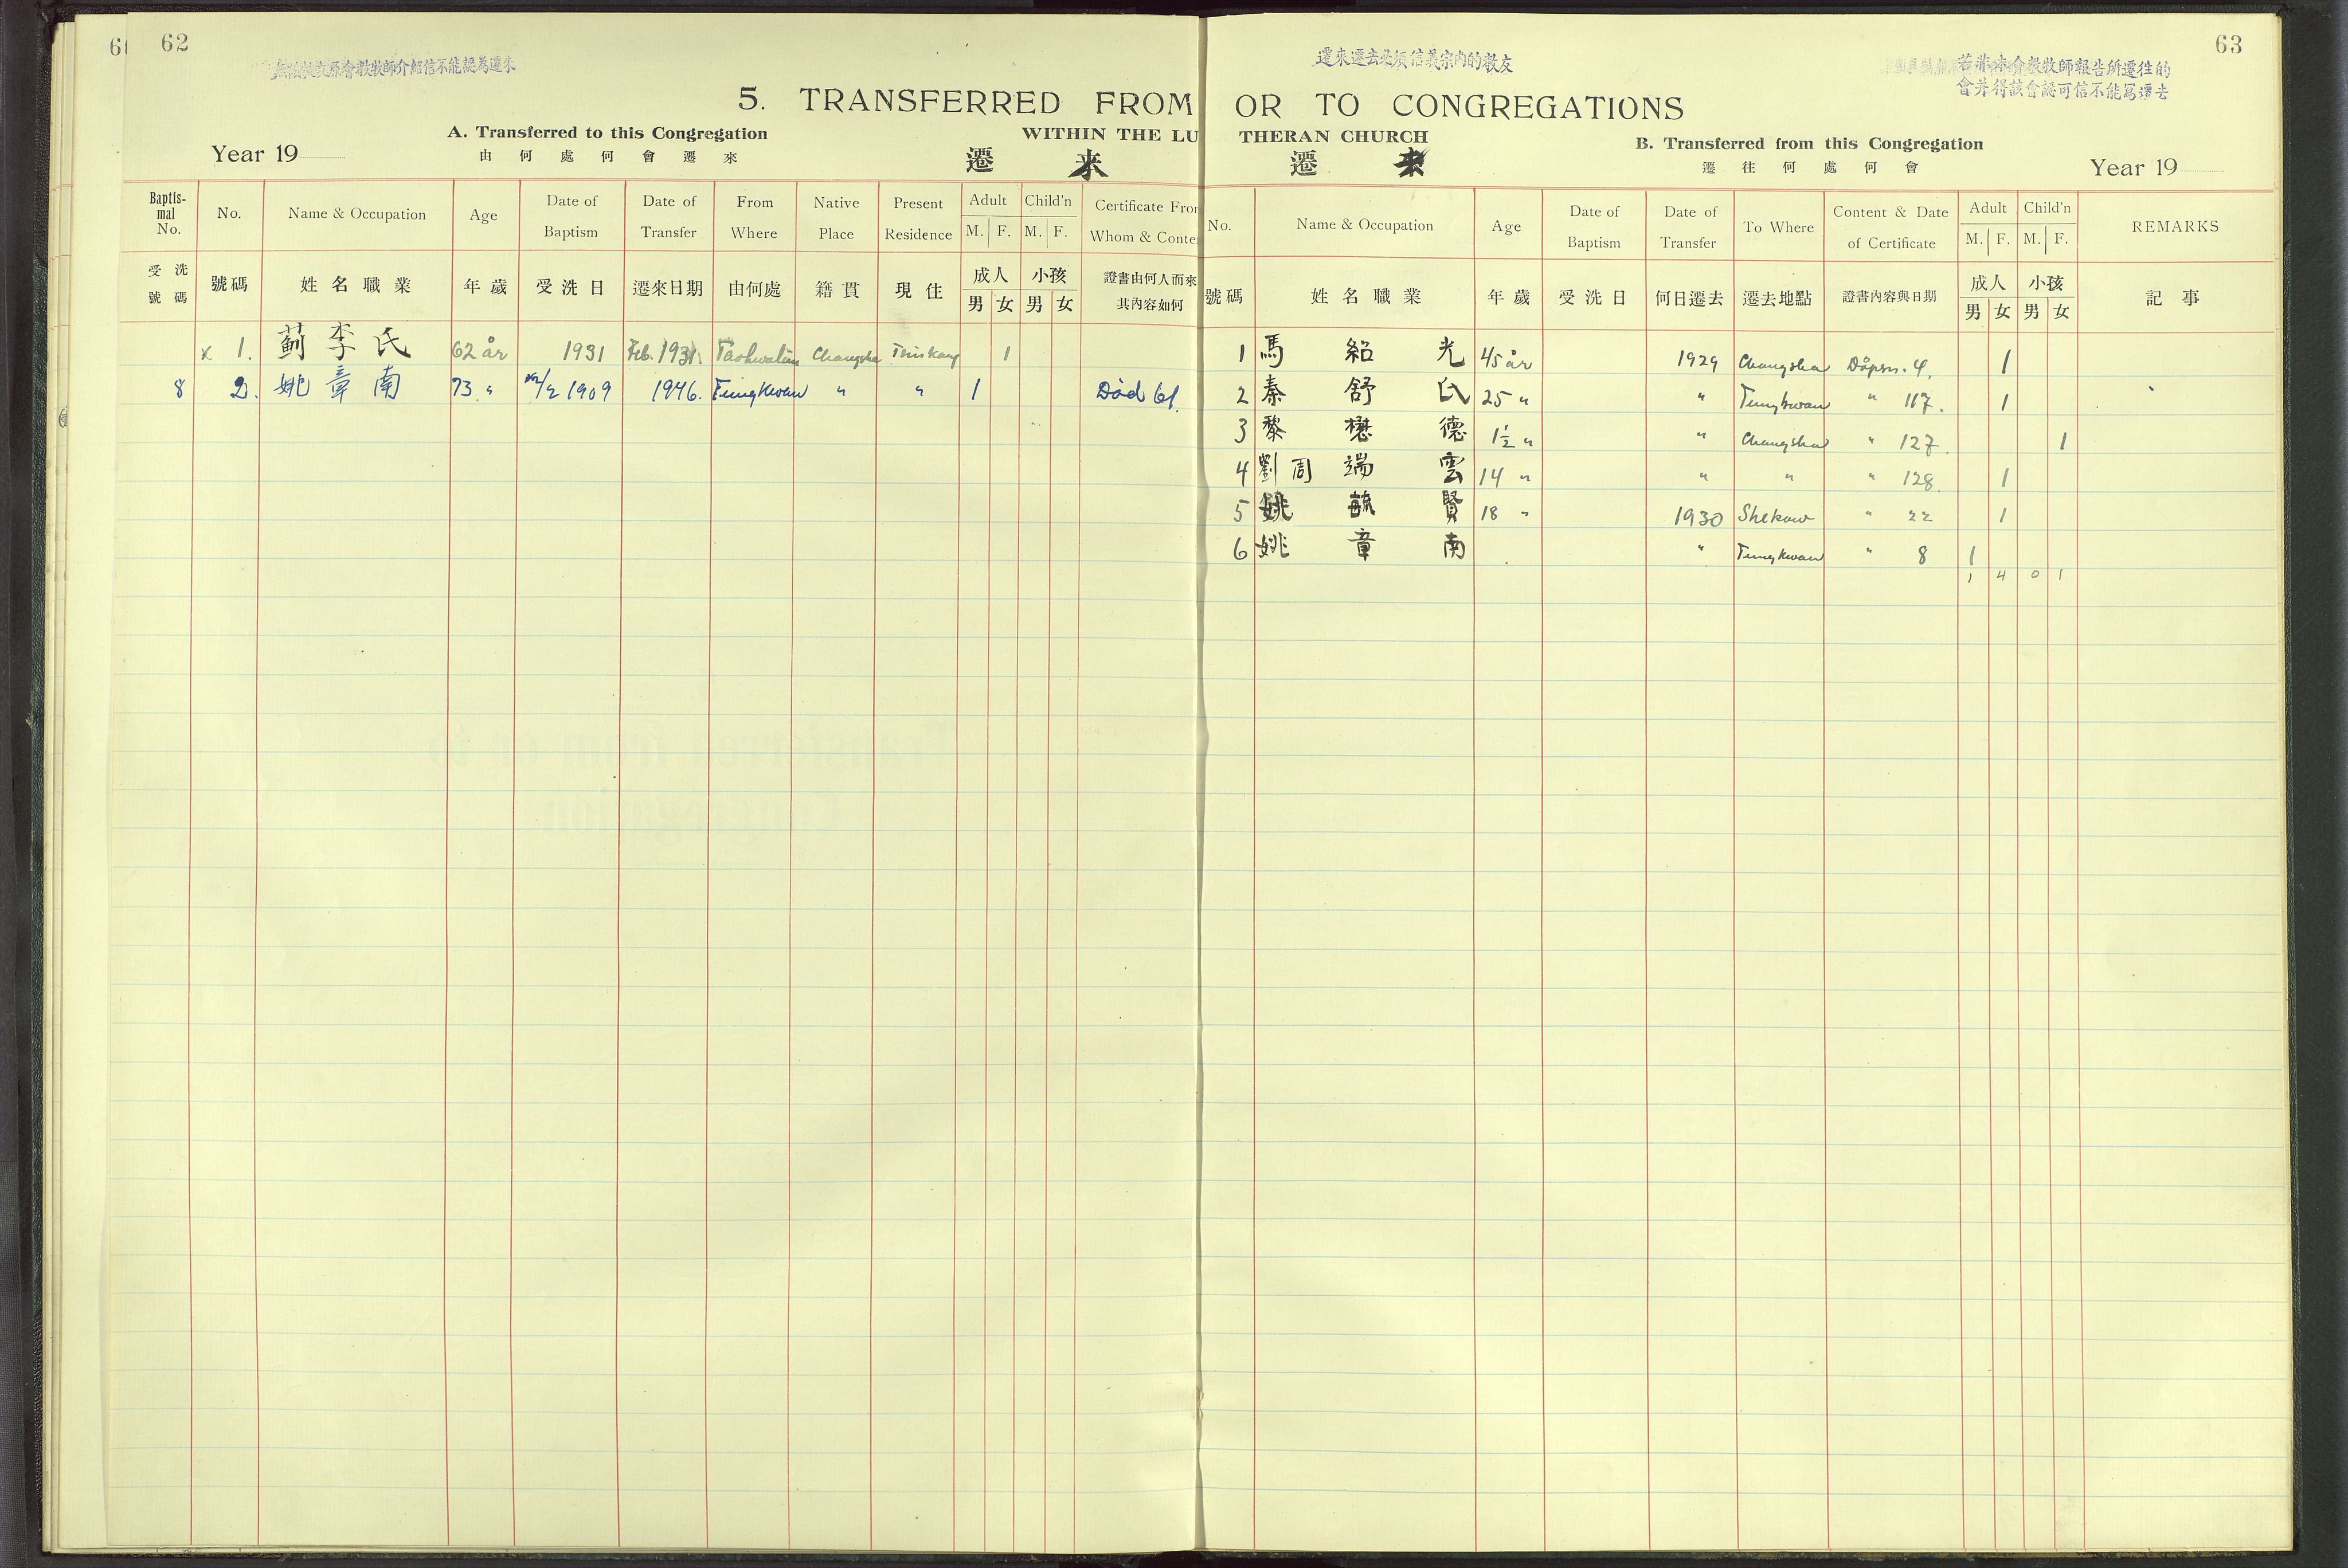 62
教牧師介紹信不能認為遷來
5. TRANSFERRED FROM
A. Transferred to this Congregation
WITHIN THE LU
Year 19
由何處何會遷來
遷 来
Baptismal No. No. Name & Occupation Age Date of Baptism Date of Transfer From Where Native Place Present Residence Adult M. F. Child'n M. F. Certificate From Whom & Conte
受洗號碼 號碼 姓名職業 年歲 受洗日 遷來日期 由何處 籍貫 現住 成人 男 女 小孩 男 女 證書由何人而來其內容如何
x 1. 李氏 62 år 1931 Feb. 1931 Taohwalun Changsha 1
8 2. 姚章南 73 " /2 1909 1946. Tungkwan " " 1 Död 61.
63
遷來遷去必須信義宗內的教友
若非本會教牧師報告所遷往的
會并得該會認可信不能寫遷去
OR TO CONGREGATIONS
THERAN CHURCH
B. Transferred from this Congregation
遷
遷往何處何會
Year 19
No. Name & Occupation Age Date of Baptism Date of Transfer To Where Content & Date of Certificate Adult M. F. Child'n M. F. REMARKS
號碼 姓名職業 年歲 受洗日 何日遷去 遷去地點 證書內容與日期 成人 男 女 小孩 男 女 記事
1 馬紹光 45 år 1929 Changsha Döpsn. 4. 1
2 秦舒氏 25 " " Tungkwan " 117. 1
3 黎懋德 1½ " " Changsha " 127. 1
4 劉周端雲 14 " " " " 128. 1
5 姚毓賢 18 " 1930 Shekow " 22 1
6 姚章南 " Tungkwan " 8 1
1 4 0 1